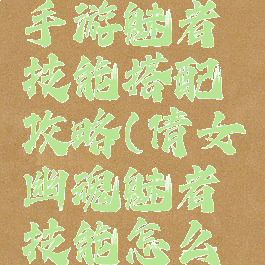 手游魅者
技能搭配
攻略(倩女
幽魂魅者
技能怎么